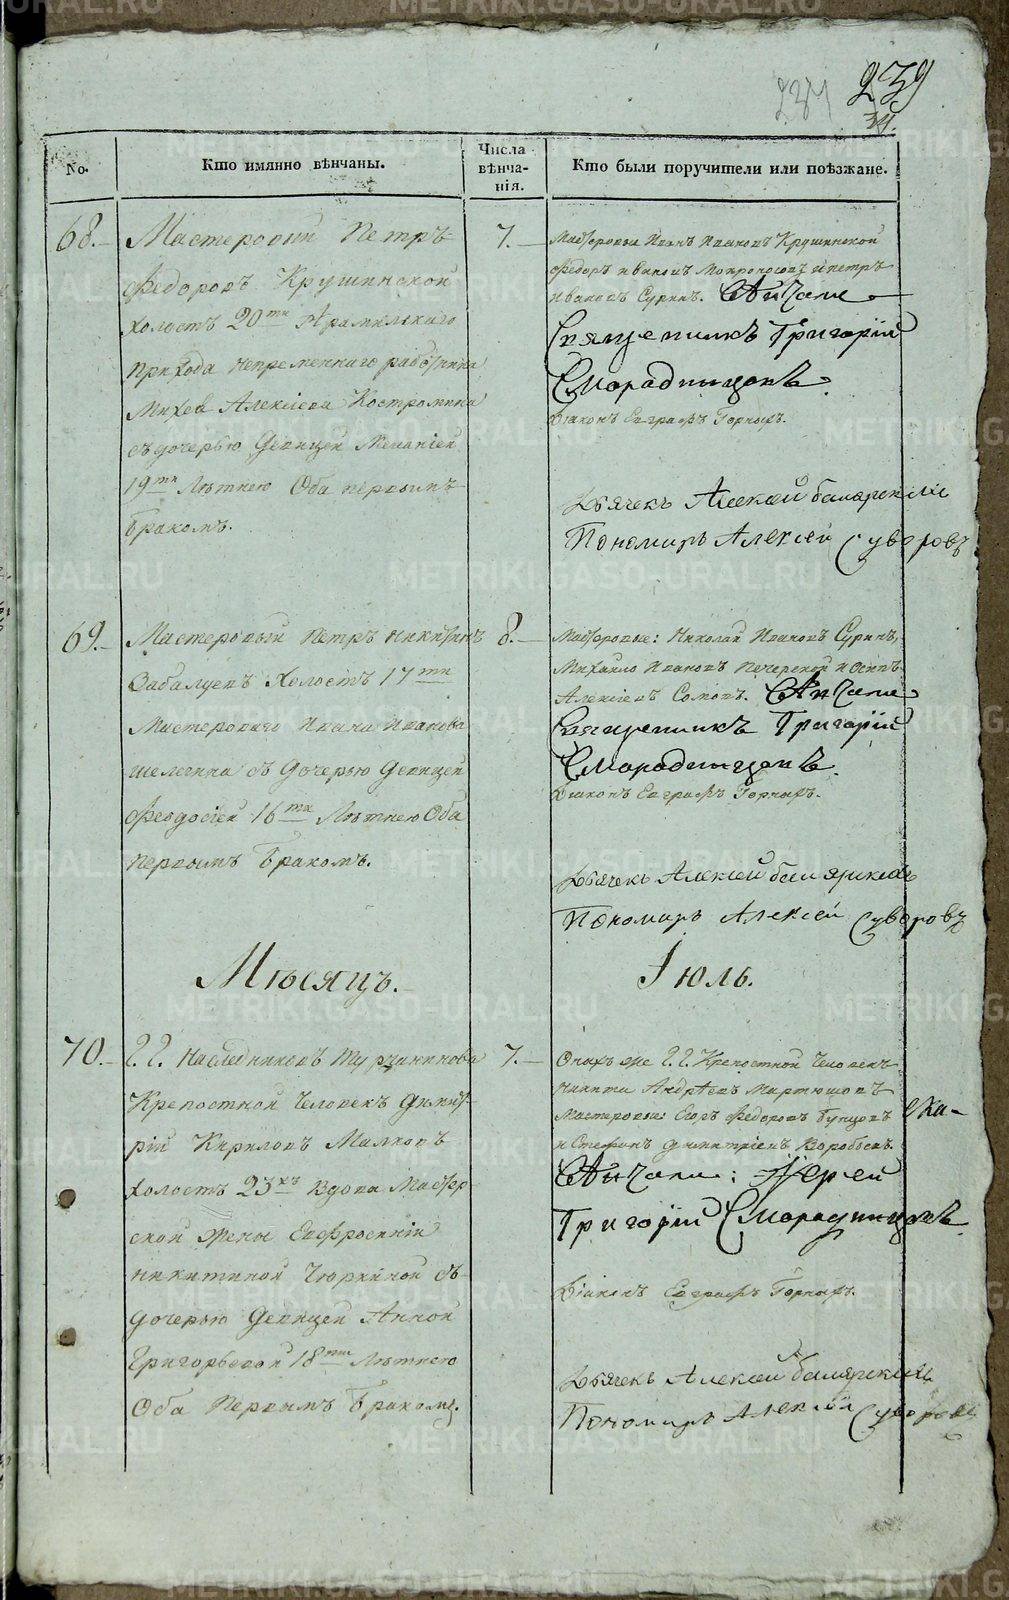 239
237
34.
No.
Кто имянно вѣнчаны.
Числа вѣнча-нія.
Кто были поручители или поѣзжане.
68.
Мастеровый Петръ
Федоровъ Крушинской
холостъ 20ти Арамильскаго
прихода непременнаго работника
Михея Алексіева Костромина
съ дочерью Девицей Меланіей
19ти Лѣтнею Оба первымъ
бракомъ.
7.
Мастеровые Иванъ Ивановъ Крушинской
Федоръ Ивановъ Мокроносовъ и Петръ
Ивановъ Суринъ. Вѣнчали
Священникъ Григорій
Смородинцовъ.
Діаконъ Евграфъ Горныхъ.
Дьячекъ Алексей
Пономарь Алексей Суворовъ
69.
Мастеровый Петръ Никитинъ
Забалуевъ Холостъ 17ти
Мастероваго Ивана Иванова
съ дочерью девицей
Феодосіей 16ти Лѣтнею Оба
первымъ бракомъ.
8.
Мастеровые: Николай Ивановъ Суринъ,
Михайло Ивановъ Печерской и Осипъ
Алексіевъ Сомовъ. Вѣнчали
Священникъ Григорій
Смородинцовъ
Діаконъ Евграфъ Горныхъ.
Дьячекъ Алексей
Пономарь Алексей Суворовъ
Мѣсяцъ. Іюль.
70.
Г. Г. Наследниковъ Турчанинова
Крепостной Человекъ Димит-
рій Кириловъ Малковъ
холостъ 23хъ Вдова Мастер-
ской жены Евфросиніи
Никитиной Чюркиной съ
дочерью Девицей Анной
Григорьевой 18ти Лѣтнею
Оба Первымъ Бракомъ.
7.
Онахъ же Г. Г. Крепостной Человекъ
Никита Андрѣевъ Мартюшовъ
Мастеровые: Егоръ Федоровъ Бунцовъ
и Стефанъ Димитріевъ Воробьевъ.
Вѣнчали: Іерей
Григорій Смородинцовъ
Діаконъ Евграфъ Горныхъ.
Дьячекъ Алексей
Пономарь Алексей Суворовъ
METRIKI.GASO-URAL.RU